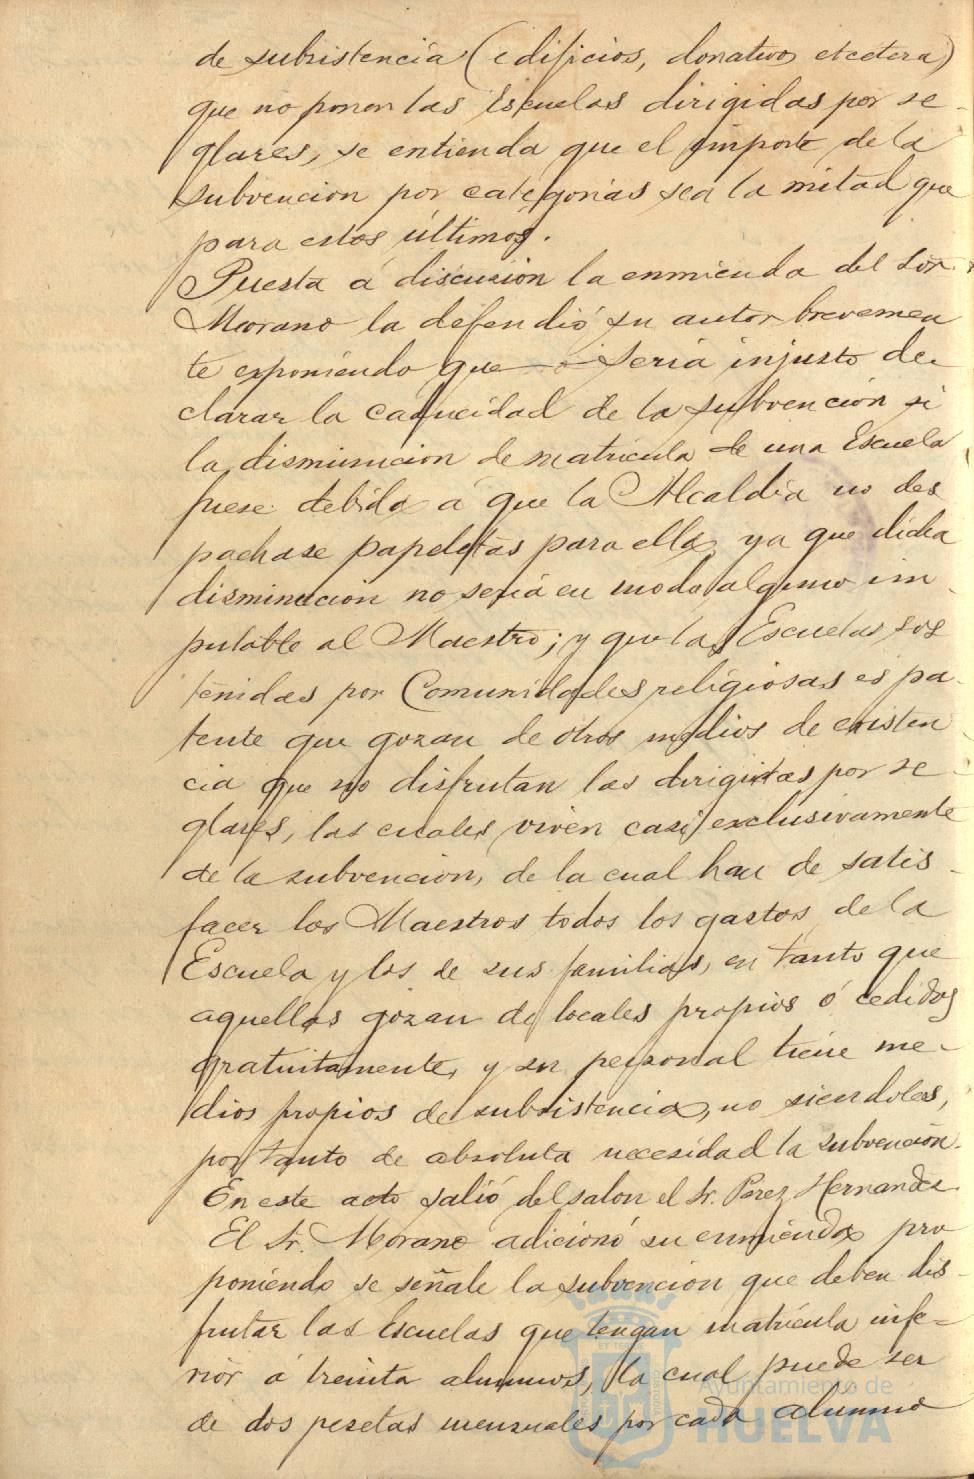 de subsistencia (edificios, donativos etcetera)
que no ponen las Escuelas dirigidas por se-
glares, se entienda que el importe de la
subvencion por categorias sea la mitad que
para estos últimos.
Puesta á discusion la enmienda del Sor.
Morano la defendió su autor brevemen
te exponiendo que sería injusto de-
clarar la caducidad de la subvención si
la disminucion de matrícula de una Escuela
fuese debida á que la Alcaldia no des
pachase papeletas para ella, ya que dicha
disminucion no sería en modo alguno im-
putable al Maestro; y que las Escuelas sos
tenidas por Comunidades religiosas es pa-
tente que gozan de otros medios de existen
cia que no disfrutan las dirigidas por se-
glares, las cuales viven casi exclusivamente
de la subvencion, de la cual han de satis-
facer los Maestros todos los gastos de la
Escuela y los de sus familias, en tanto que
aquellas gozan de locales propios ó cedidos
gratuitamente, y su personal tiene me-
dios propios de subsistencia, no siendoles,
por tanto de absoluta necesidad la subvención.
En este acto salió del salon el Sr. Perez Hernandez
El Sr. Morano adicionó su enmienda pro
poniendo se señale la subvencion que deben dis-
frutar las Escuelas que tengan matrícula infe-
rior á treinta alumnos, la cual puede ser
de dos pesetas mensuales por cada alumno
Ayuntamiento de
HUELVA